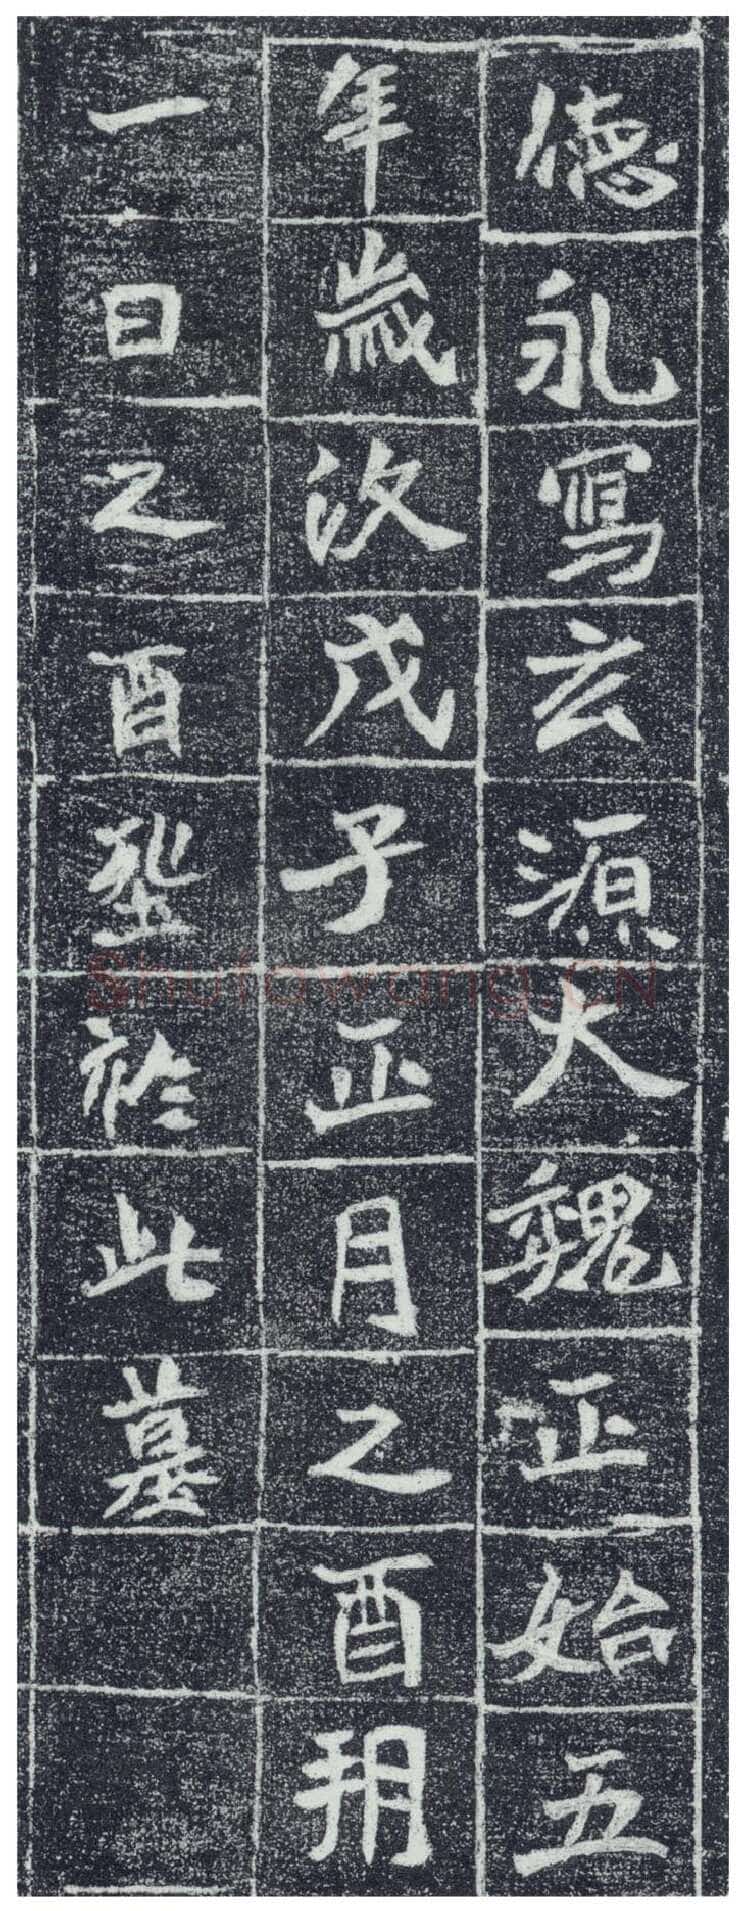 德永寫玄源大魏正始五
年歲次戊子正月之酉朔
一日之酉塟於此墓
Shufawang.CN